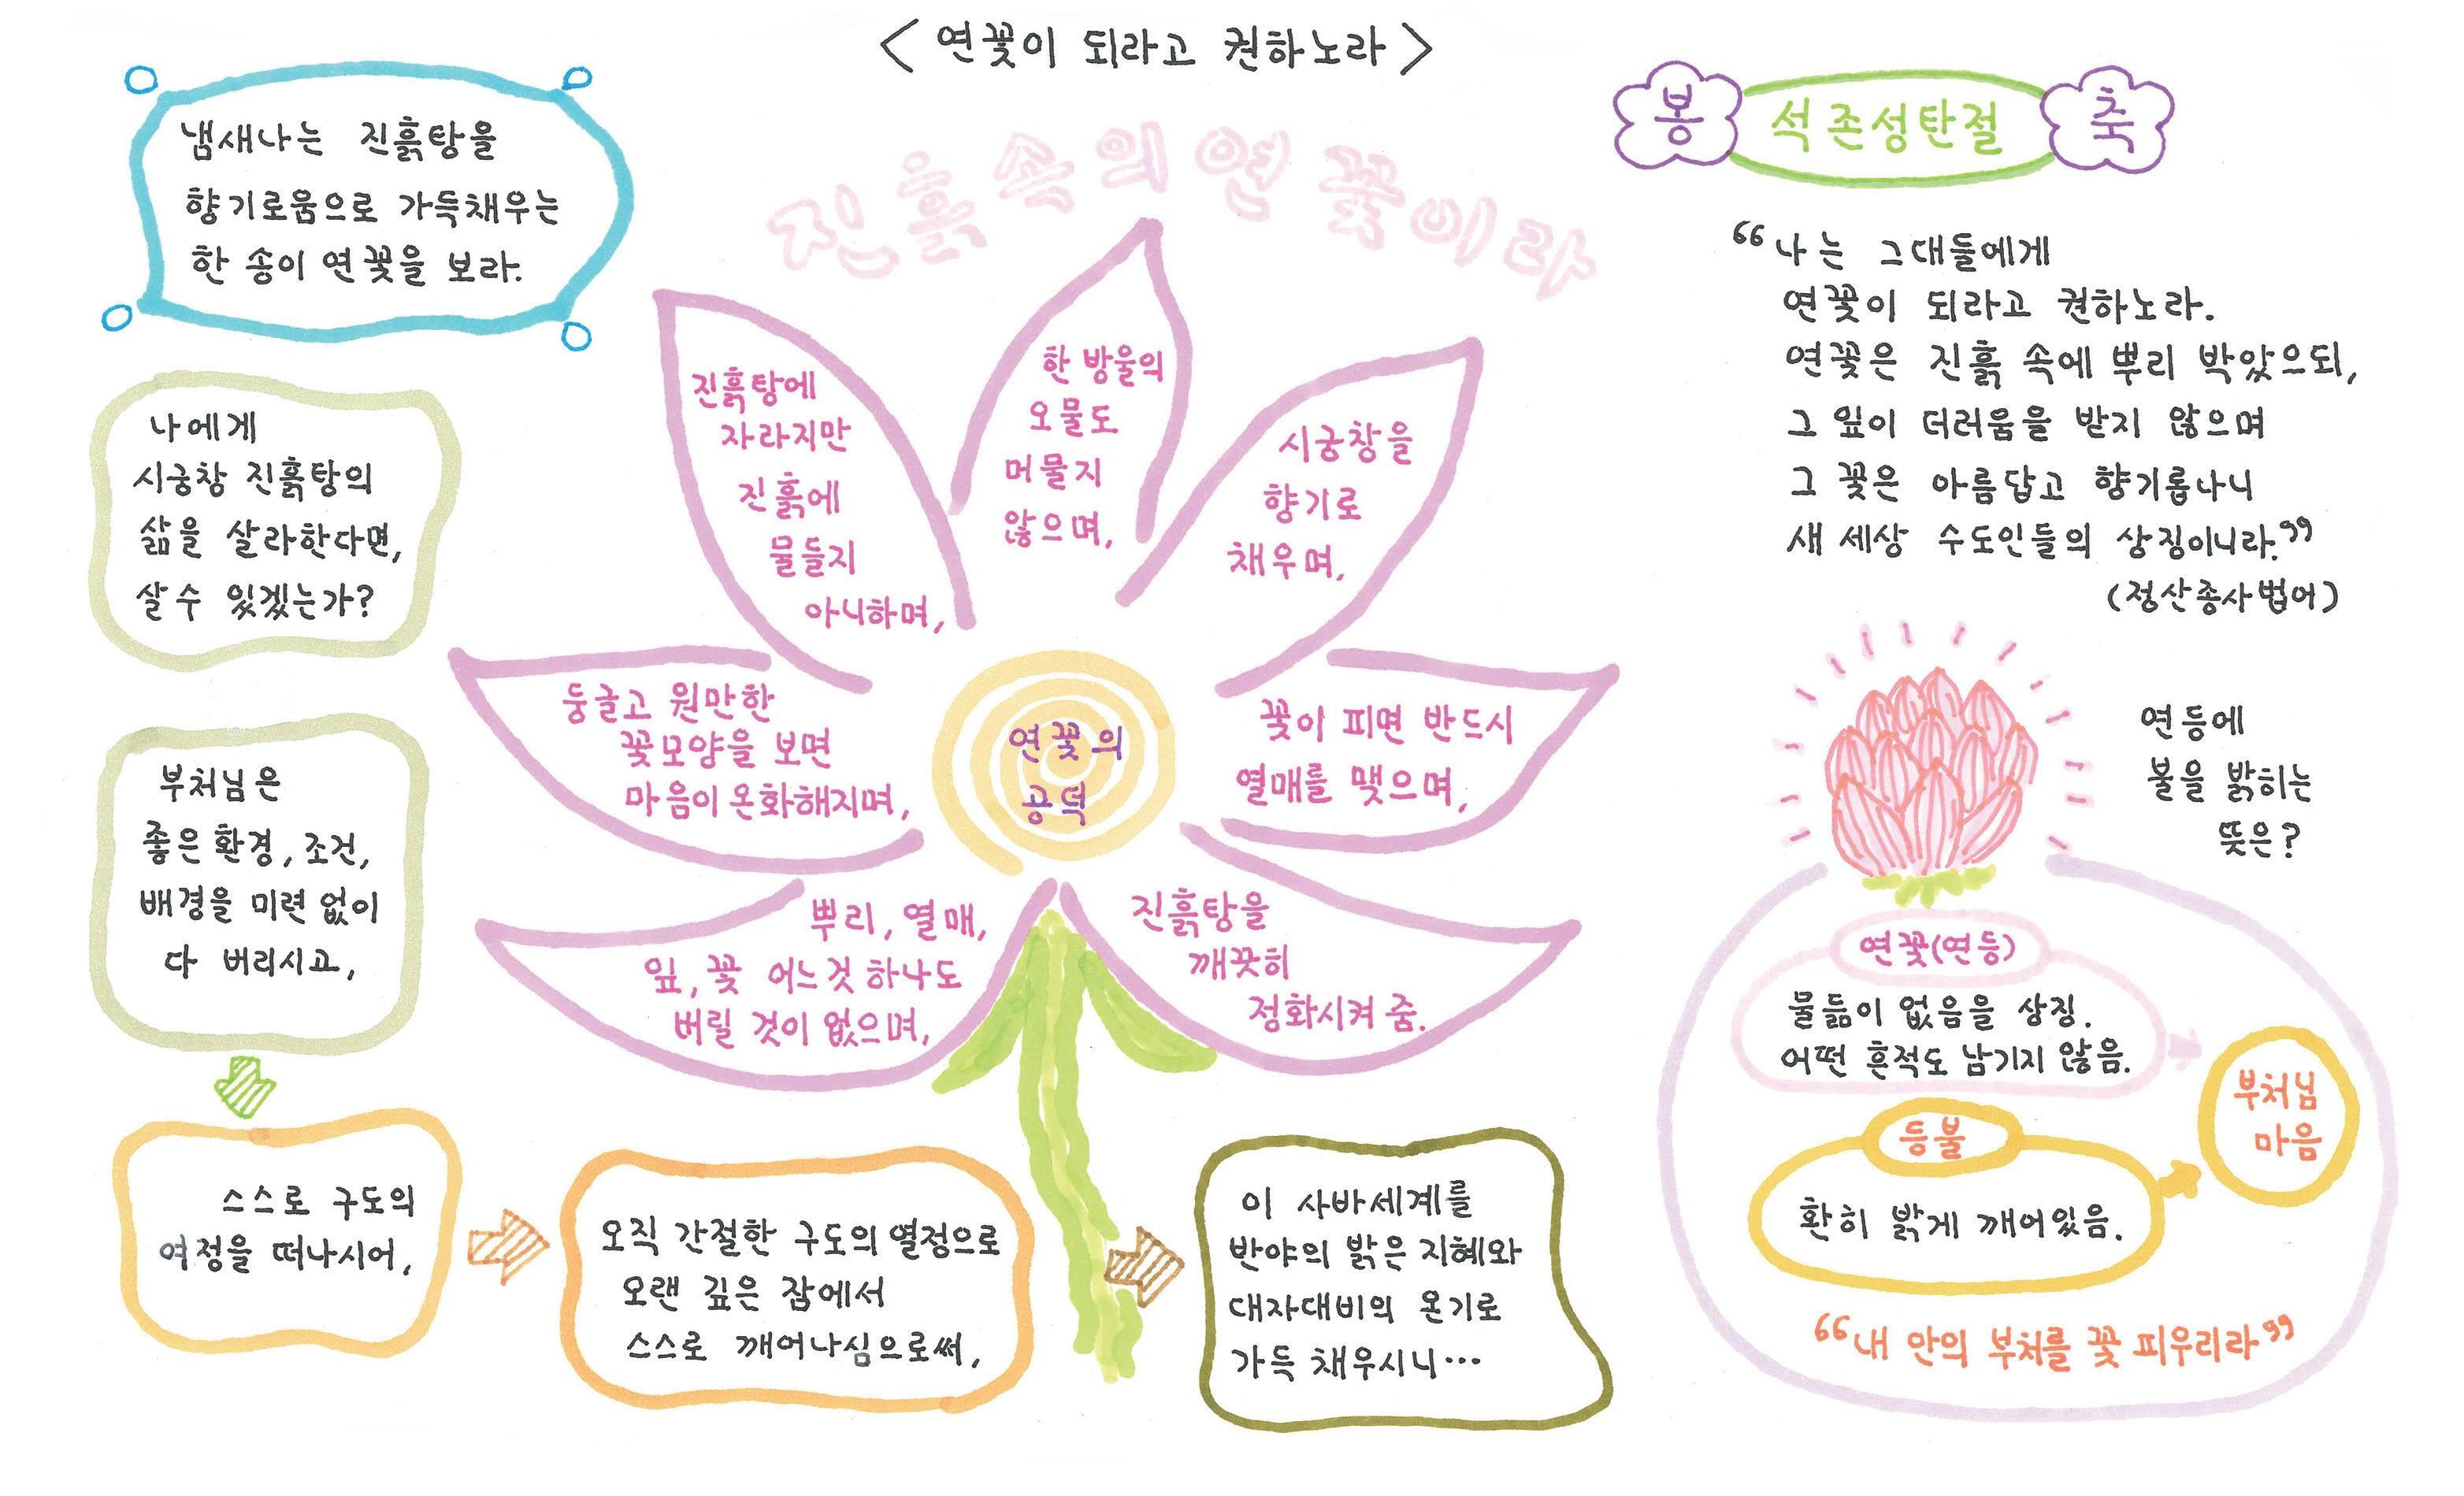 < 연꽃이 되라고 권하노라 >
진흙 속의 연꽃이라
냄새나는 진흙탕을
향기로움으로 가득채우는
한 송이 연꽃을 보라.
나에게
시궁창 진흙탕의
삶을 살라한다면,
살 수 있겠는가?
부처님은
좋은 환경, 조건,
배경을 미련 없이
다 버리시고,
스스로 구도의
여정을 떠나시어,
오직 간절한 구도의 열정으로
오랜 깊은 잠에서
스스로 깨어나심으로써,
이 사바세계를
반야의 밝은 지혜와
대자대비의 온기로
가득 채우시니…
연꽃의
공덕
진흙탕에
자라지만
진흙에
물들지
아니하며,
한 방울의
오물도
머물지
않으며,
시궁창을
향기로
채우며,
둥글고 원만한
꽃모양을 보면
마음이 온화해지며,
꽃이 피면 반드시
열매를 맺으며,
뿌리, 열매,
잎, 꽃 어느것 하나도
버릴 것이 없으며,
진흙탕을
깨끗히
정화시켜 줌.
봉 석존성탄절 축
“나는 그대들에게
연꽃이 되라고 권하노라.
연꽃은 진흙 속에 뿌리 박았으되,
그 잎이 더러움을 받지 않으며
그 꽃은 아름답고 향기롭나니
새 세상 수도인들의 상징이니라.”
(정산종사법어)
연등에
불을 밝히는
뜻은?
연꽃(연등)
물듦이 없음을 상징.
어떤 흔적도 남기지 않음.
등불
환히 밝게 깨어있음.
부처님
마음
“내 안의 부처를 꽃 피우리라”